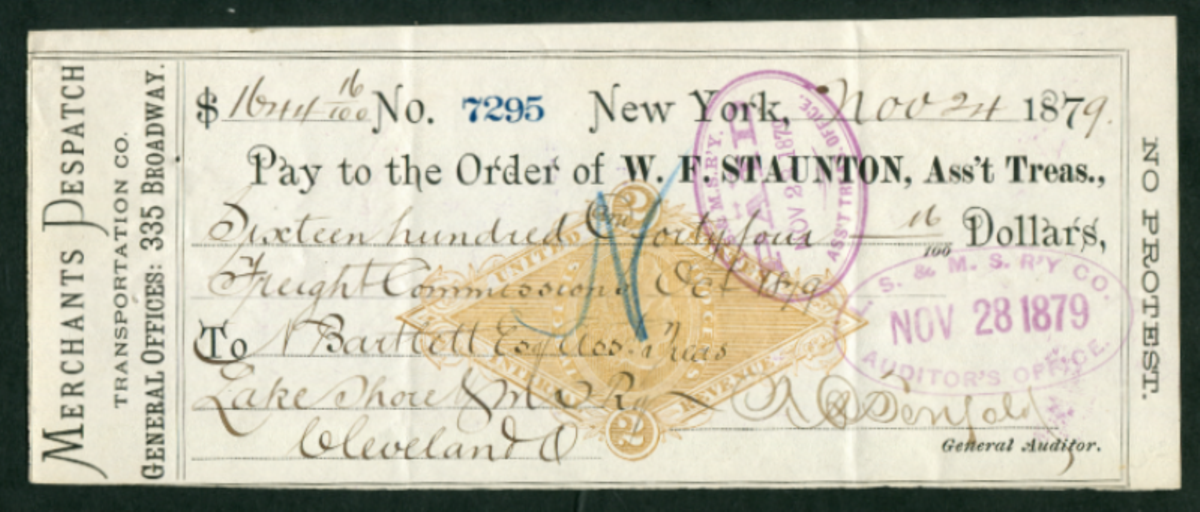 MERCHANTS DESPATCH
TRANSPORTATION CO.
GENERAL OFFICES: 335 BROADWAY.
$ 1644 16/100 No. 7295 New York, Nov 24 1879.
Pay to the Order of W. F. STAUNTON, Ass't Treas.,
Sixteen hundred & forty four 16/100 Dollars,
Freight Commissions Oct 1879
To N Bartlett Esq Ass. Treas
Lake Shore & M S Ry
Cleveland O
General Auditor.
NO PROTEST.
L. S. & M. S. R'Y. CO.
NOV 28 1879
AUDITOR'S OFFICE.
M.S.R'Y.
PAID
NOV 1879
ASS'T TR OFFICE.
UNITED
INTERNAL
REVENUE
2
2
N